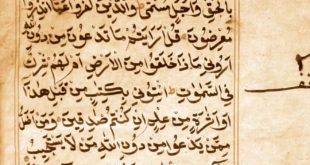 بِالْحَقِّ وَأَجَلٍ مُسَمًّى وَالَّذِينَ كَفَرُوا عَمَّا أُنْذِرُوا
مُعْرِضُونَ قُلْ أَرَأَيْتُمْ مَا تَدْعُونَ مِنْ دُونِ اللَّهِ
أَرُونِي مَاذَا خَلَقُوا مِنَ الْأَرْضِ أَمْ لَهُمْ شِرْكٌ
فِي السَّمَوَاتِ ائْتُونِي بِكِتَبٍ مِنْ قَبْلِ هَذَا
أَوْ أَثَرَةٍ مِنْ عِلْمٍ إِنْ كُنْتُمْ صَدِقِينَ وَمَنْ أَضَلُّ
مِمَّنْ يَدْعُوا مِنْ دُونِ اللَّهِ مَنْ لَا يَسْتَجِيبُ